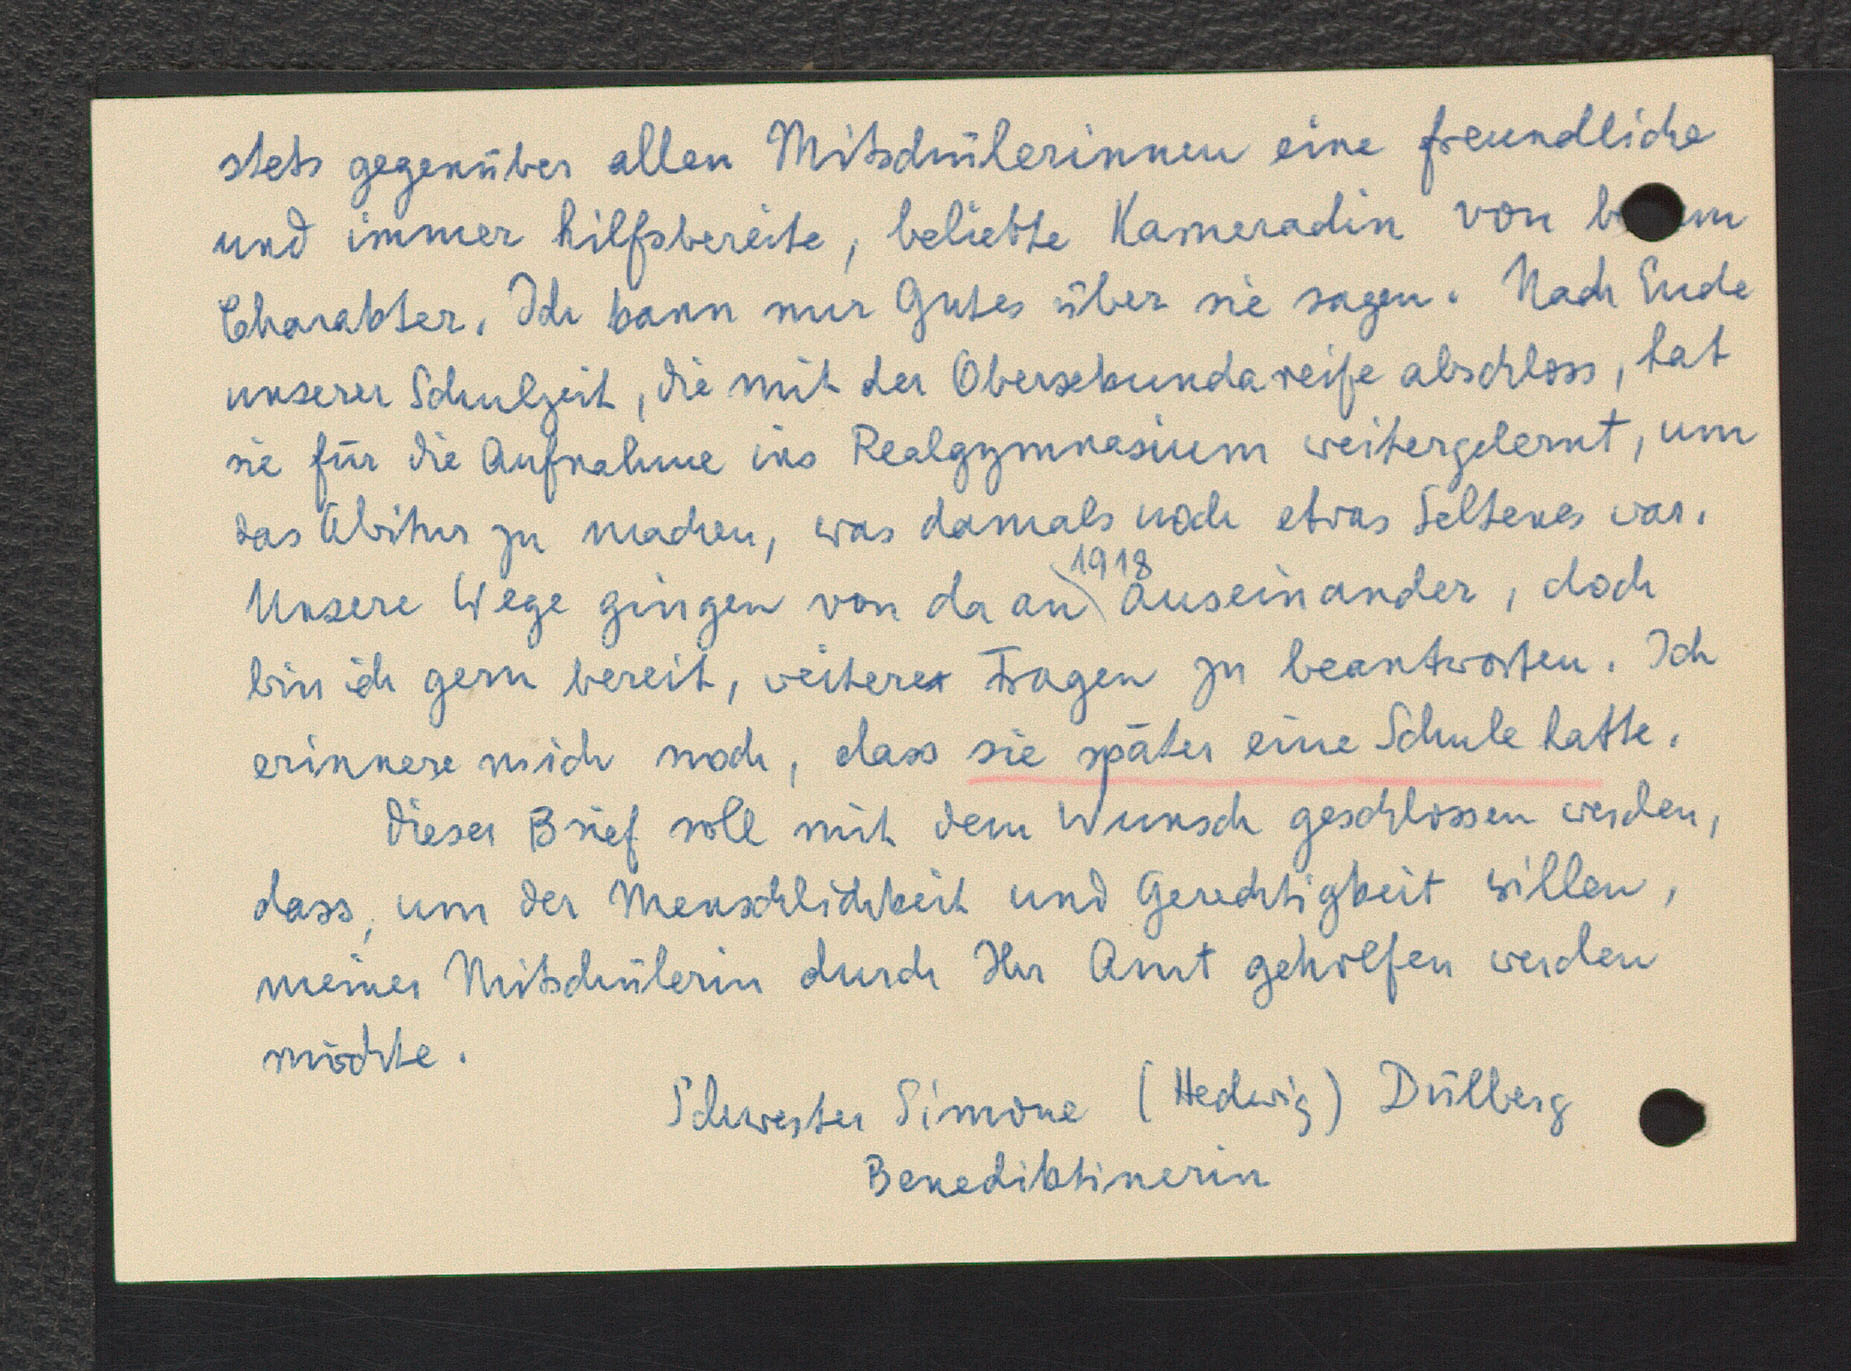 stets gegenüber allen Mitschülerinnen eine freundliche
und immer hilfsbereite, beliebte Kameradin von
Charakter. Ich kann nur Gutes über sie sagen. Nach Ende
unserer Schulzeit, die mit der Obersekundareife abschloss, hat
sie für die Aufnahme ins Realgymnasium weitergelernt, um
das Abitur zu machen, was damals noch etwas Seltenes war.
1918
Unsere Wege gingen von da an auseinander, doch
bin ich gern bereit, weitere Fragen zu beantworten. Ich
erinnere mich noch, dass sie später eine Schule hatte.
Dieser Brief soll mit dem Wunsch geschlossen werden,
dass, um der Menschlichkeit und Gerechtigkeit willen,
meiner Mitschülerin durch Ihr Amt geholfen werden
möchte.
Schwester Simone (Hedwig) Dülberg
Benediktinerin